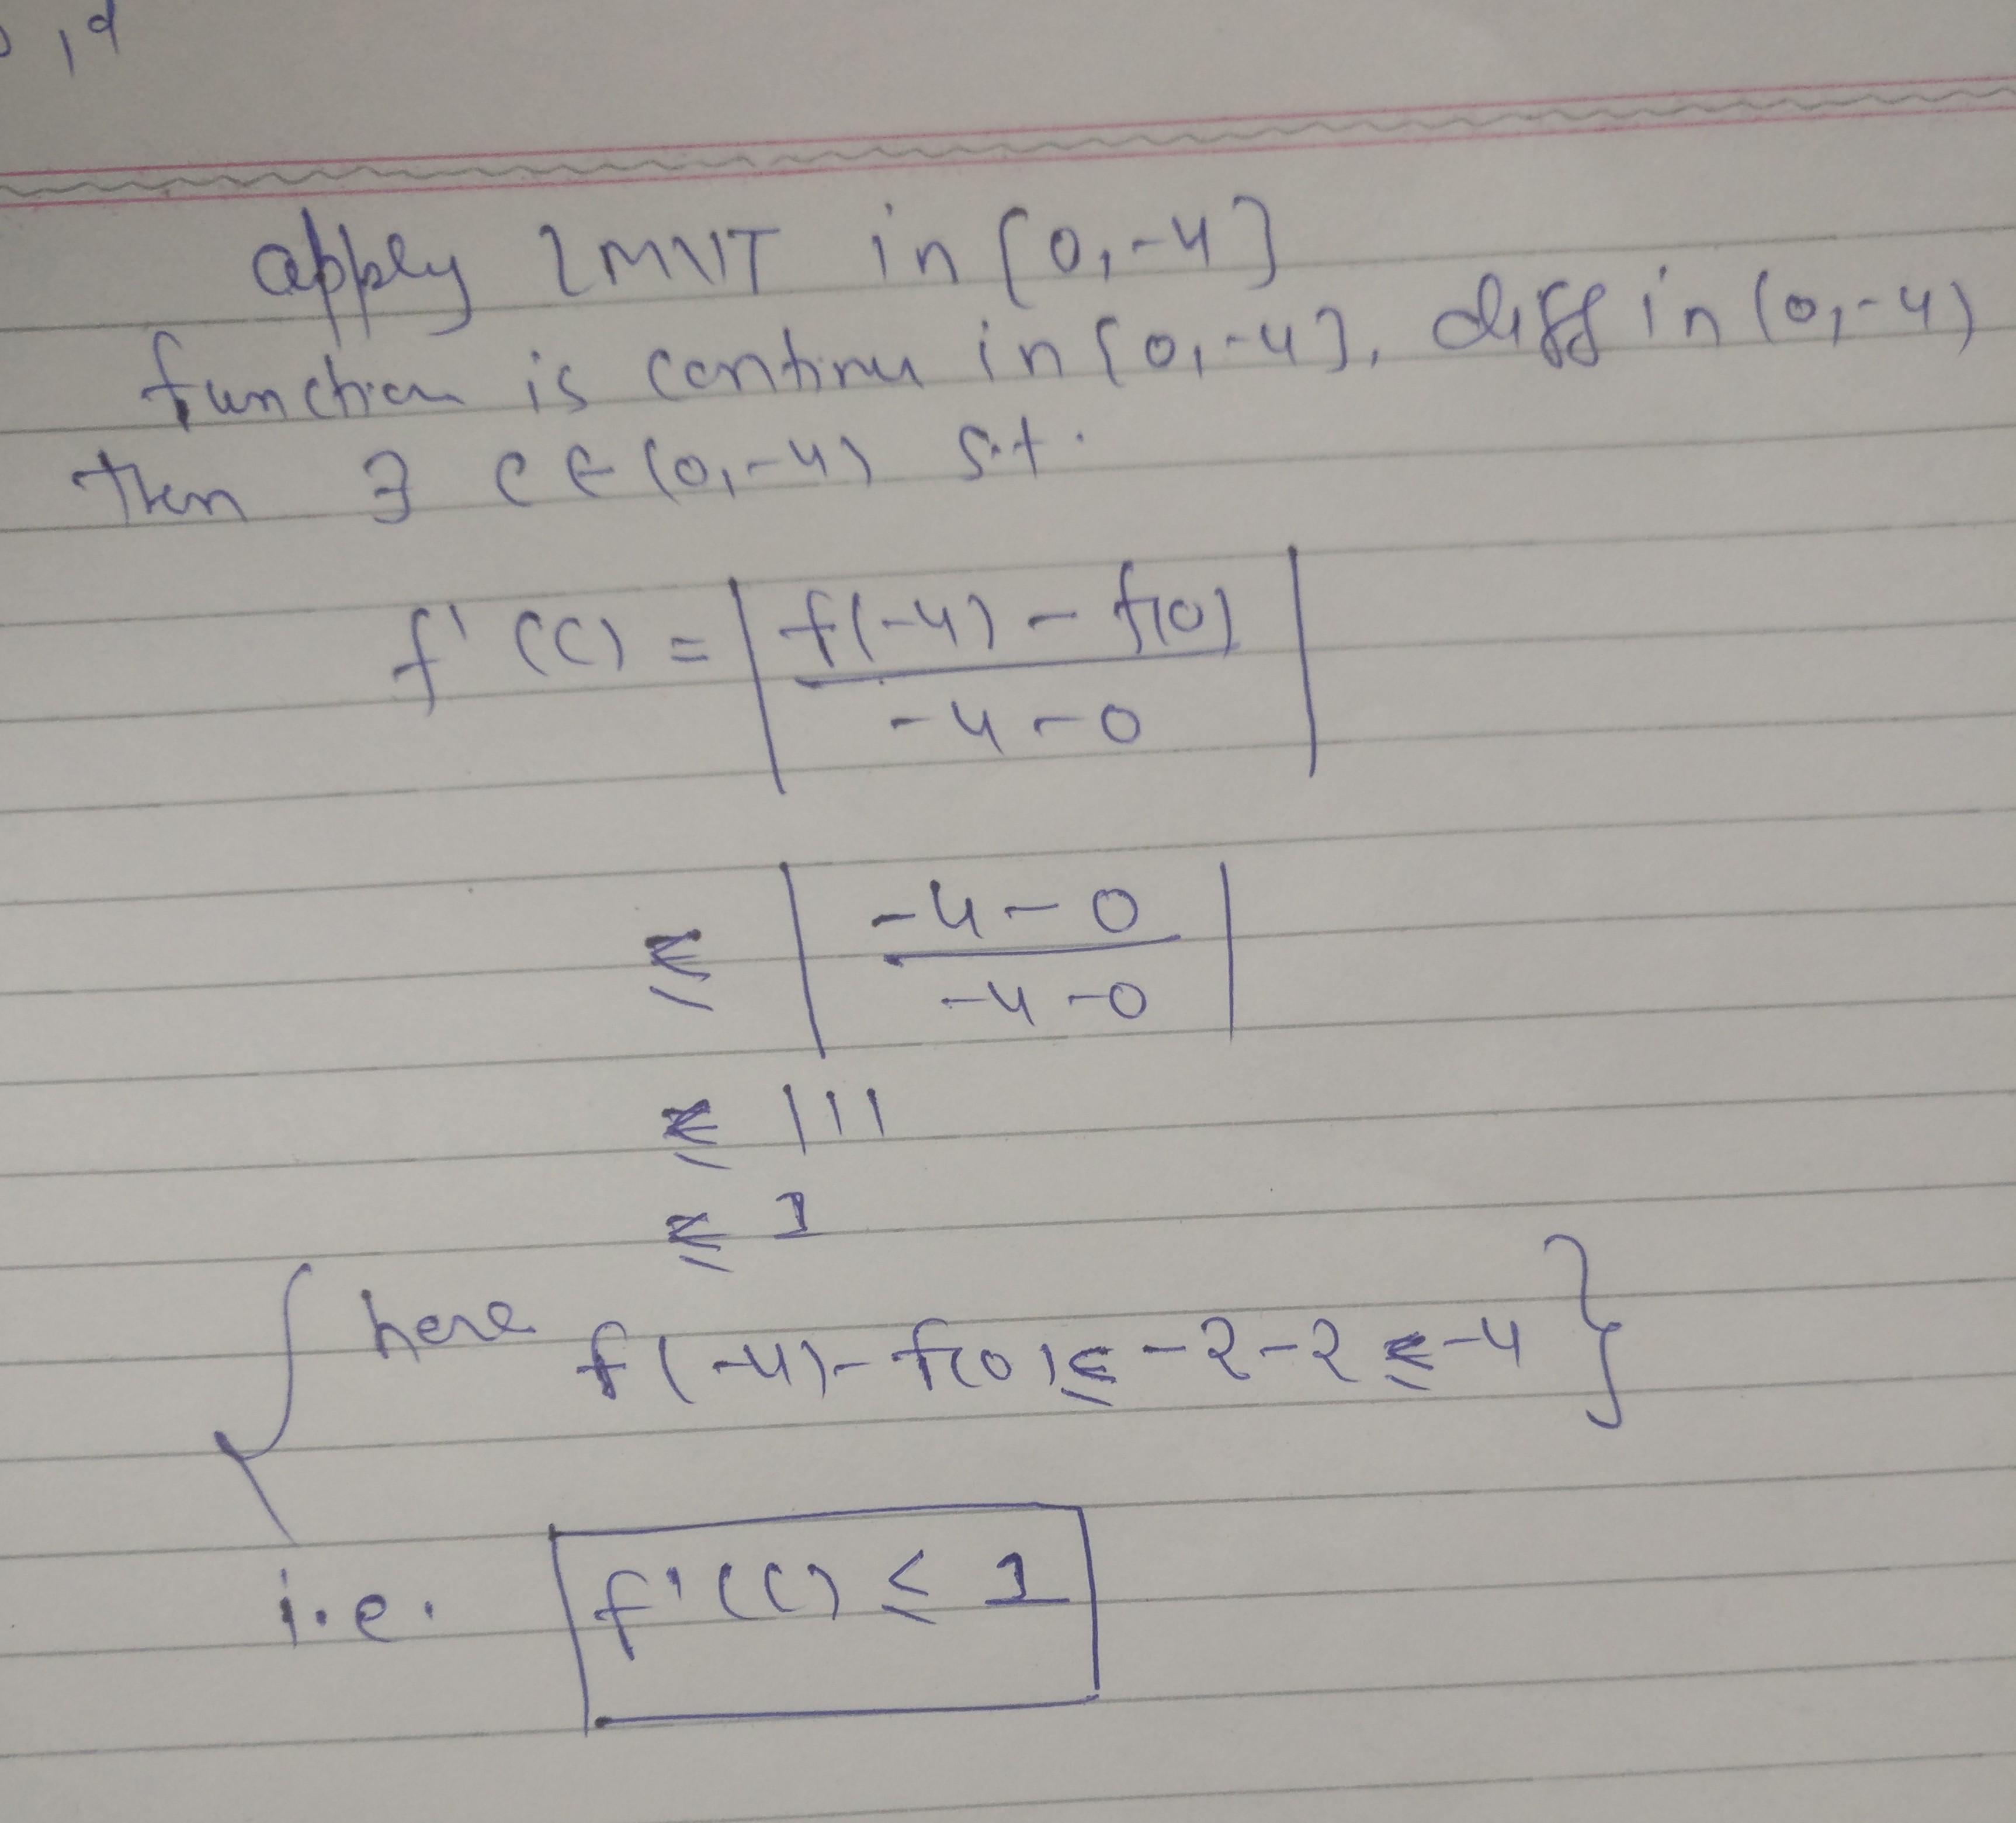 , 9
apply LMVT in [0,-4]
function is continu in [0,-4], diff in (0,-4)
Then ∃ c ∈ (0,-4) s.t.
f'(c) = | f(-4) - f(0) / -4-0 |
≤ | -4-0 / -4-0 |
≤ |1|
≤ 1
{ here f(-4)-f(0) ≤ -2-2 ≤ -4 }
i.e. f'(c) ≤ 1